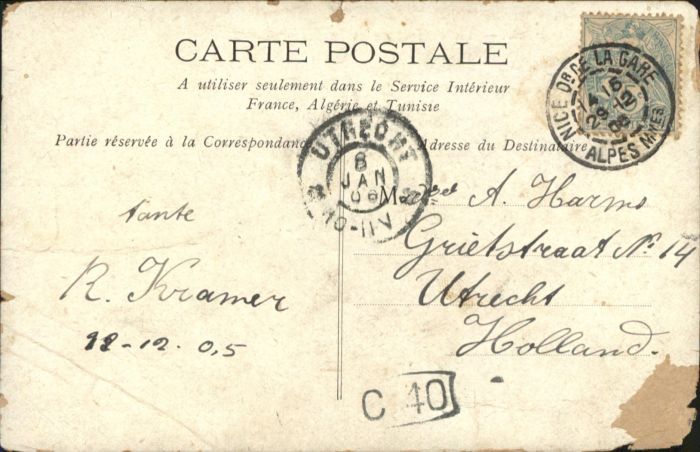 CARTE POSTALE
A utiliser seulement dans le Service Intérieur
France, Algérie et Tunisie
Partie réservée à la Correspondance
Adresse du Destinataire
NICE Dʳ DE LA GARE
ALPES MMES
UTRECHT
8
JAN
06
10-11V
M A. Harms
Grietstraat No 14
Utrecht
Holland.
tante
R. Kramer
-12-05
C 40